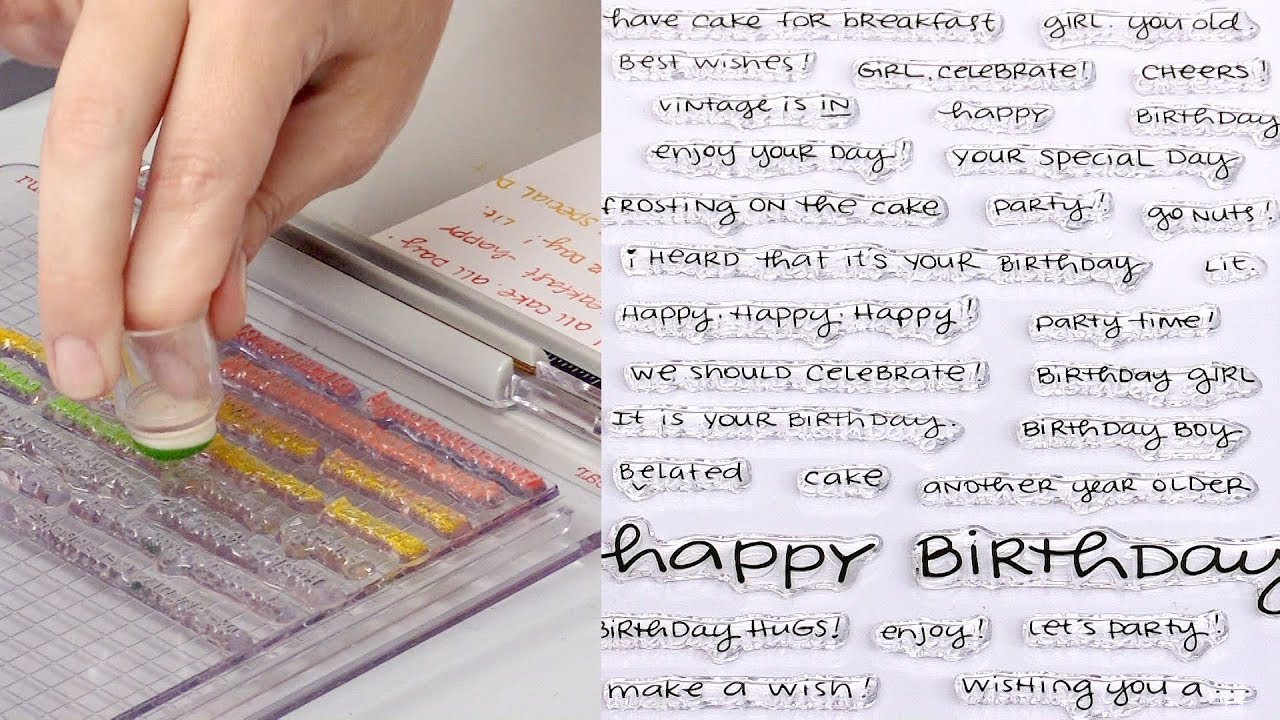 have cake for breakfast girl. you old.
Best wishes! girl, celebrate! cheers!
vintage is in happy Birthday
enjoy your day! your special day
frosting on the cake party! go nuts!
i heard that it's your birthday Lit.
Happy. Happy. Happy! party time!
we should celebrate! Birthday girl
It is your birthday. Birthday boy
Belated cake another year older
happy Birthday
Birthday Hugs! enjoy! Let's party!
make a wish! wishing you a...
special d
day! Lit.
eakfast happy
all cake. all day.